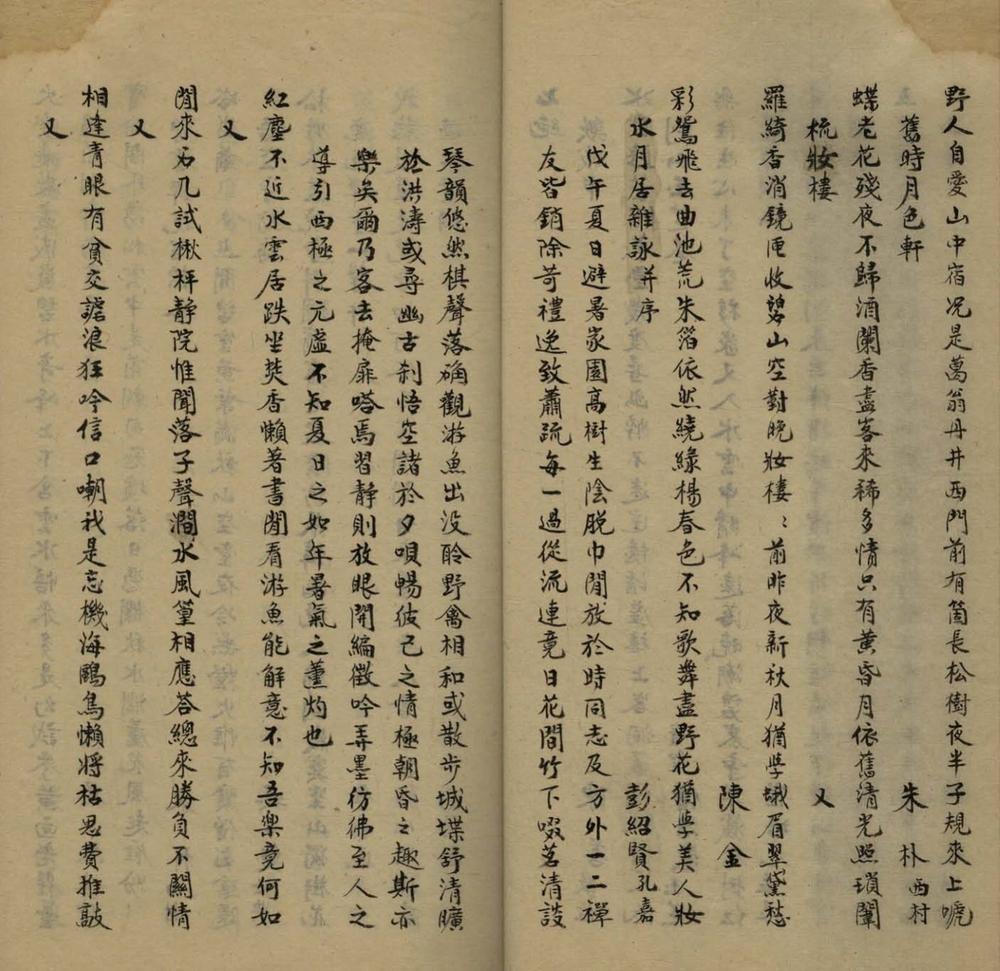 野人自愛山中宿况是葛翁丹井西門前有箇長松樹夜半子規來上啼
舊時月色軒 朱朴西村
蝶老花殘夜不歸酒闌香盡客來稀多情只有黄昏月依舊清光照瑣闈
梳妝樓 又
羅綺香消鏡匣收碧山空對晚妝樓〻前昨夜新秋月猶學蛾眉翠黛愁
陳金
彩鴛飛去曲池荒朱箔依然繞緑楊春色不知歌舞盡野花猶學美人妝
水月居雜詠并序 彭紹賢孔嘉
戊午夏日避暑家園高樹生陰脱巾閒放於時同志及方外一二禪
友皆銷除苛禮逸致蕭疏每一過從流連竟日花間竹下啜茗清談
琴韻悠然棋聲落确觀游魚出没聆野禽相和或散步城堞舒清曠
於洪濤或尋幽古刹悟空諸於夕唄暢彼己之情極朝昏之趣斯亦
樂矣爾乃客去掩扉嗒焉習静則放眼開編微吟弄墨彷彿至人之
導引西極之元虛不知夏日之如年暑氣之薰灼也
紅塵不近水雲居趺坐焚香懶著書閒看游魚能解意不知吾樂竟何如
又
閒來為几試楸枰静院惟聞落子聲澗水風篁相應荅總來勝負不關情
又
相逢青眼有貧交謔浪狂吟信口嘲我是忘機海鷗鳥懶將枯思費推敲
又